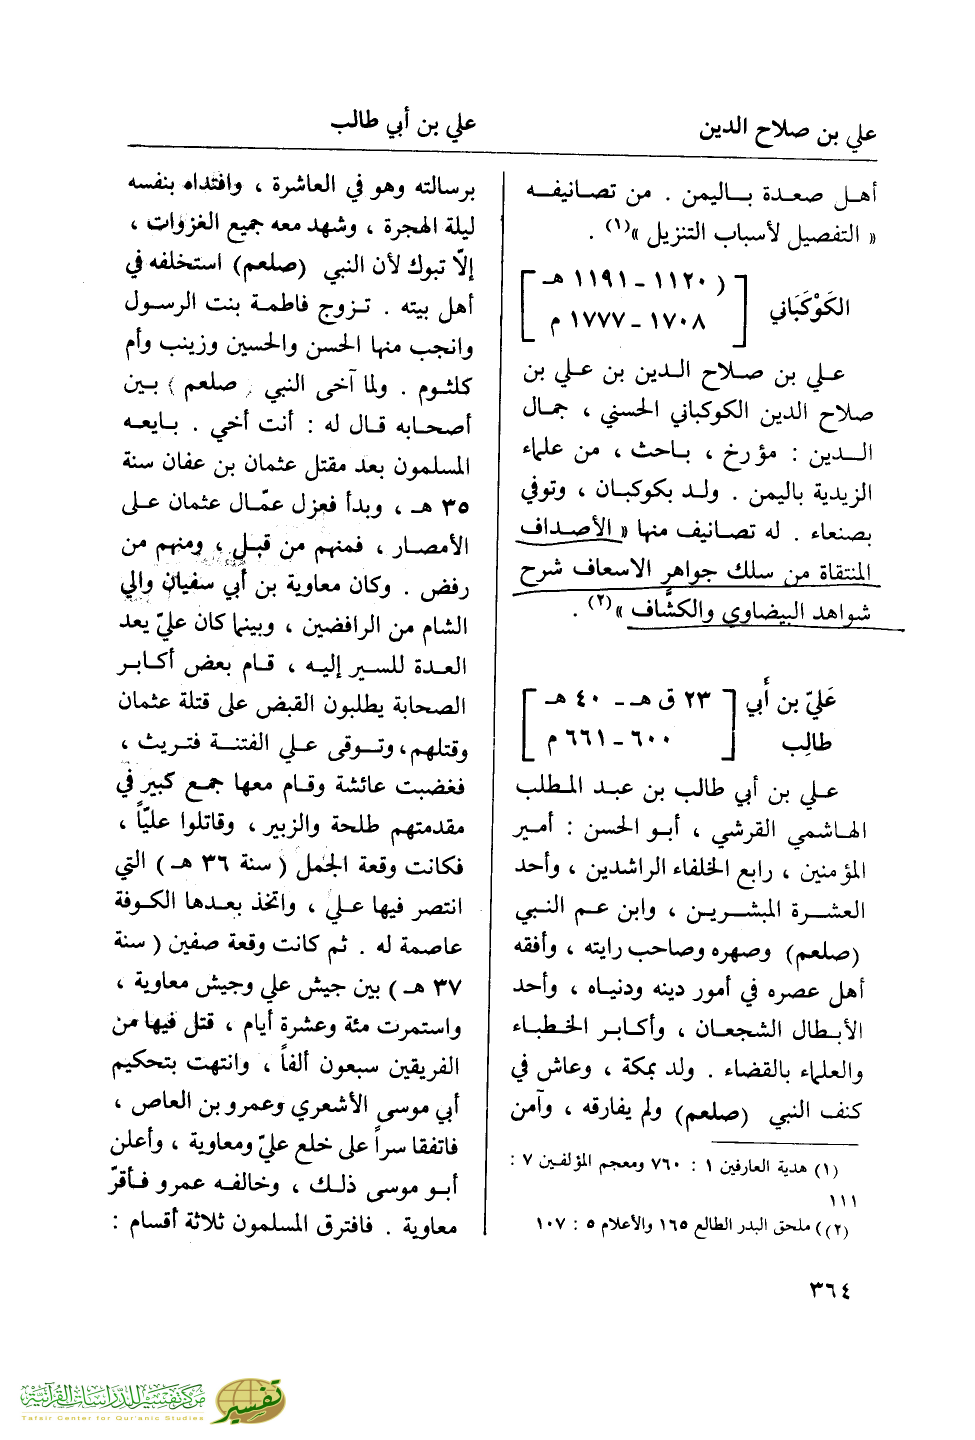 علي بن صلاح الدين
علي بن أبي طالب
أهل صعدة باليمن . من تصانيفه
« التفصيل لأسباب التنزيل »(١) .
الكَوْكَبَاني
( ١١٢٠ - ١١٩١ هـ
١٧٠٨ - ١٧٧٧ م
علي بن صلاح الدين بن علي بن
صلاح الدين الكوكباني الحسني ، جمال
الدين : مؤرخ ، باحث ، من علماء
الزيدية باليمن . ولد بكوكبان ، وتوفي
بصنعاء . له تصانيف منها « الأصداف
المنتقاة من سلك جواهر الاسعاف شرح
شواهد البيضاوي والكشّاف »(٢) .
عَليّ بن أبي
طالِب
٢٣ ق هـ - ٤٠ هـ
٦٠٠ - ٦٦١ م
علي بن أبي طالب بن عبد المطلب
الهاشمي القرشي ، أبو الحسن : أمير
المؤمنين ، رابع الخلفاء الراشدين ، وأحد
العشرة المبشرين ، وابن عم النبي
(صلعم) وصهره وصاحب رايته ، وأفقه
أهل عصره في أمور دينه ودنياه ، وأحد
الأبطال الشجعان ، وأكابر الخطباء
والعلماء بالقضاء . ولد بمكة ، وعاش في
كنف النبي (صلعم) ولم يفارقه ، وآمن
(١) هدية العارفين ١ : ٧٦٠ ومعجم المؤلفين ٧ :
١١١
(٢)) ملحق البدر الطالع ١٦٥ والأعلام ٥ : ١٠٧
برسالته وهو في العاشرة ، وافتداه بنفسه
ليلة الهجرة ، وشهد معه جميع الغزوات ،
إلّا تبوك لأن النبي (صلعم) استخلفه في
أهل بيته . تزوج فاطمة بنت الرسول
وانجب منها الحسن والحسين وزينب وأم
كلثوم . ولما آخى النبي ( صلعم ) بين
أصحابه قال له : أنت أخي . بايعه
المسلمون بعد مقتل عثمان بن عفان سنة
٣٥ هـ ، وبدأ فعزل عمّال عثمان على
الأمصار ، فمنهم من قبل ، ومنهم من
رفض . وكان معاوية بن أبي سفيان والي
الشام من الرافضين ، وبينما كان عليّ يعد
العدة للسير إليه ، قام بعض أكابر
الصحابة يطلبون القبض على قتلة عثمان
وقتلهم، وتوقى علي الفتنة فتريث ،
فغضبت عائشة وقام معها جمع كبير في
مقدمتهم طلحة والزبير ، وقاتلوا عليّاً ،
فكانت وقعة الجمل ( سنة ٣٦ هـ ) التي
انتصر فيها علي ، واتخذ بعدها الكوفة
عاصمة له . ثم كانت وقعة صفين ( سنة
٣٧ هـ ) بين جيش علي وجيش معاوية ،
واستمرت مئة وعشرة أيام ، قتل فيها من
الفريقين سبعون ألفاً ، وانتهت بتحكيم
أبي موسى الأشعري وعمرو بن العاص ،
فاتفقا سراً على خلع عليّ ومعاوية ، وأعلن
أبو موسى ذلك ، وخالفه عمرو فأقرّ
معاوية . فافترق المسلمون ثلاثة أقسام :
٣٦٤
مركز تفسير للدراسات القرآنية
Tafsir Center for Qur'anic Studies
تفسير